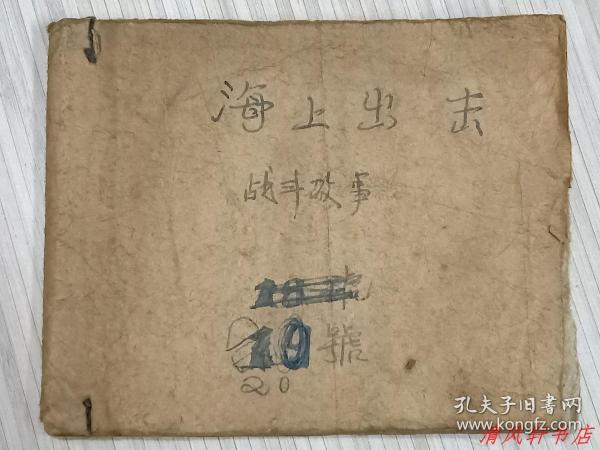 海上出击
战斗故事
18号
19號
20
孔夫子旧书网
www.kongfz.com
清风轩书店